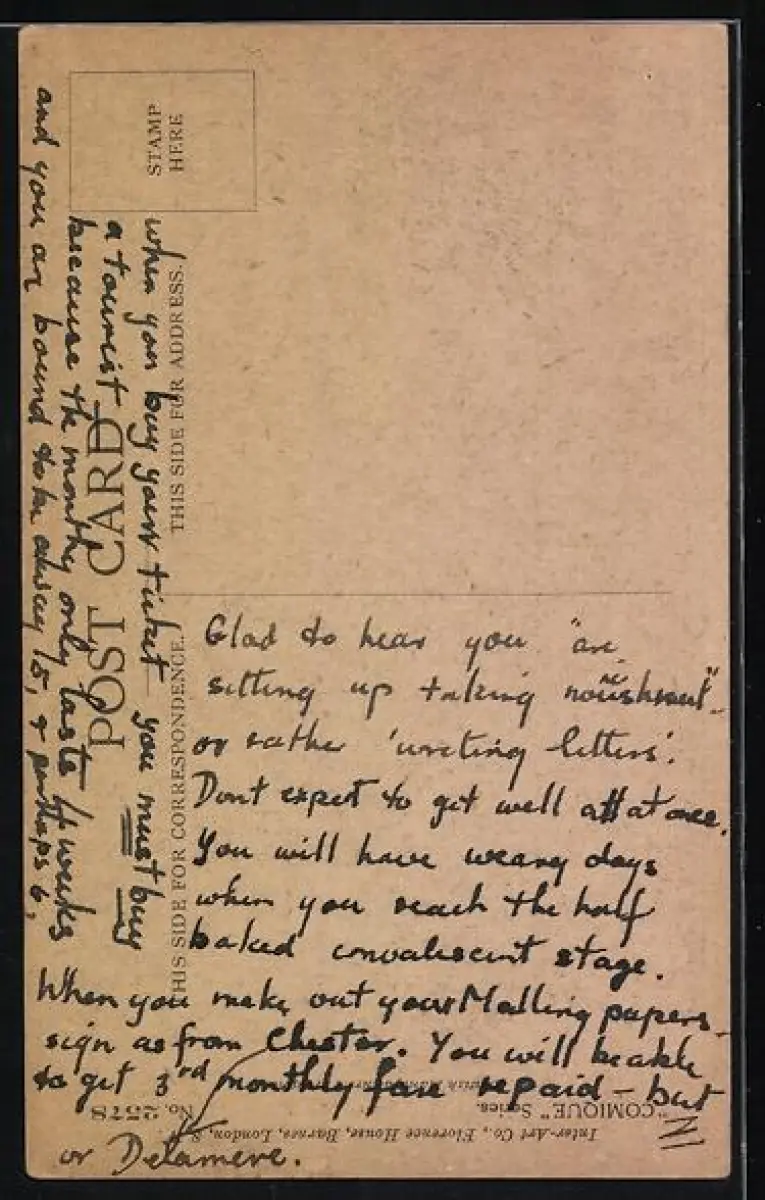 STAMP
HERE
POST CARD
THIS SIDE FOR CORRESPONDENCE.
THIS SIDE FOR ADDRESS.
Glad to hear you "are
sitting up taking nourishment"
or rather 'writing letters'.
Dont expect to get well all at once.
You will have weary days
when you reach the half
baked convalescent stage.
When you make out your Malling papers
sign as from Chester. You will be able
or Delamere.
to get 3rd monthly fare repaid - but
when you buy your ticket you must buy
a tourist
because the monthly only lasts 4 weeks
and you are bound to be away 5, & perhaps 6,
"COMIQUE" Series.
No. 2578
Inter-Art Co., Florence House, Barnes, London, S.